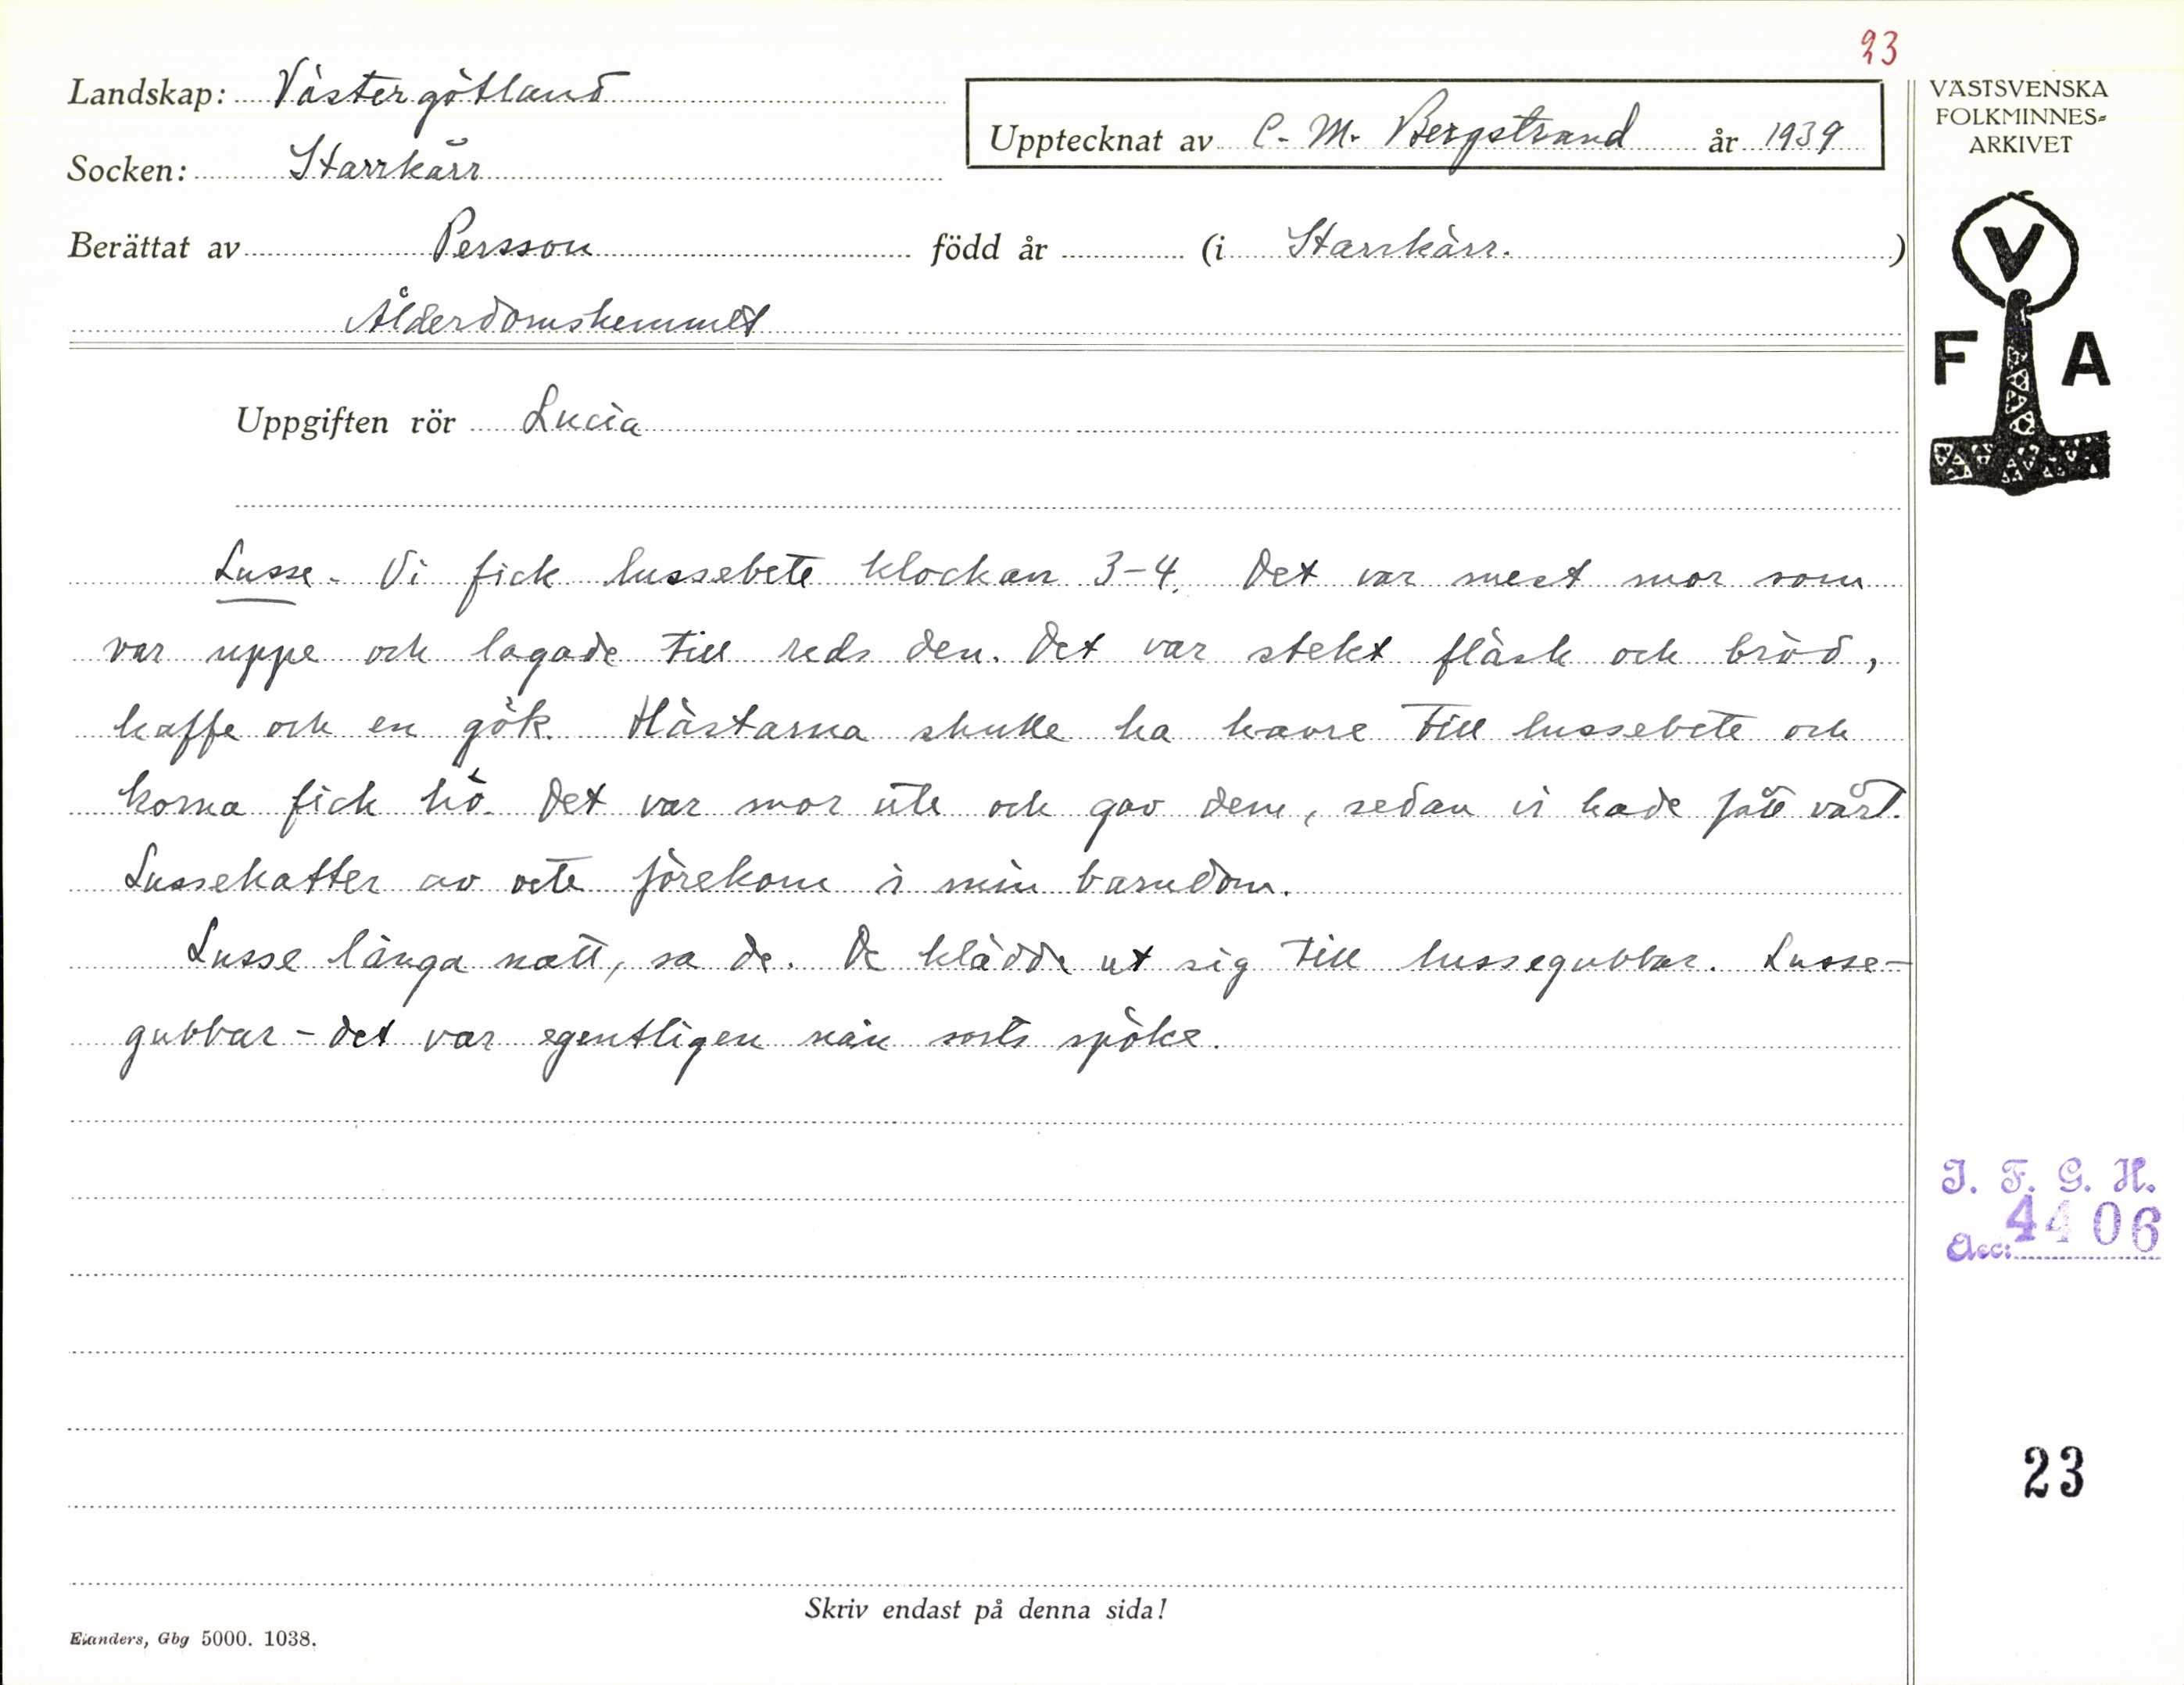 23
Landskap: Västergötland
Socken: Starrkärr
Upptecknat av C. M. Bergstrand år 1939
Berättat av Persson född år (i Starrkärr.)
Ålderdomshemmet
Uppgiften rör Lucia
Lusse. Vi fick lussebete klockan 3-4. Det var mest mor som
var uppe och lagade till reds den. Det var stekt fläsk och bröd,
kaffe och en gök. Hästarna skulle ha havre till lussebete och
korna fick hö. Det var mor ute och gav dem, sedan vi hade fått vårt.
Lussekatter av vete förekom i min barndom.
Lusse långa natt, sa de. De klädde ut sig till lussegubbar. Lusse-
gubbar - det var egentligen nån sorts spöke.
Skriv endast på denna sida!
Elanders, Gbg 5000. 1038.
VÄSTSVENSKA
FOLKMINNES-
ARKIVET
V
F A
I. F. G. H.
Acc: 4406
23